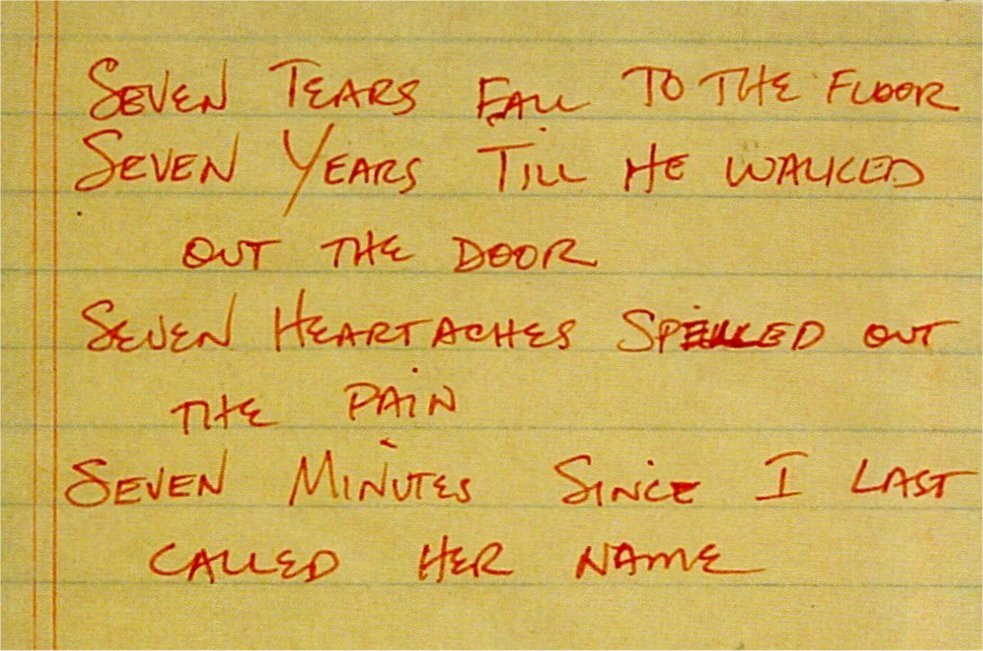 SEVEN TEARS FALL TO THE FLOOR
SEVEN YEARS TILL HE WALKED
OUT THE DOOR
SEVEN HEARTACHES SPELLED OUT
THE PAIN
SEVEN MINUTES SINCE I LAST
CALLED HER NAME